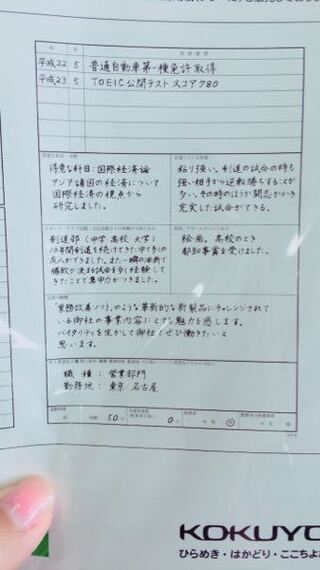 年 月 免許・資格
平成22 5 普通自動車第一種免許取得
平成23 5 TOEIC公開テスト スコア780
得意な科目・分野
得意な科目:国際経済論
アジア諸国の経済について
国際経済の視点から
研究しました。
粘り強い。剣道の試合の時も
強い相手から逆転勝ちすることが
多い。その時のほうが闘志がわき
充実した試合ができる。
剣道部(中学・高校・大学)
10年間剣道を続けてきた中で多くの
友人ができました。また一瞬の油断で
勝敗が決まる試合を多く経験して
きたことで集中力がつきました。
絵画。高校のとき
都知事賞を受けました。
志望の動機
「業務改善ソフト」のような革新的な新製品にチャレンジされて
いる御社の事業内容にとても魅力を感じます。
バイタリティを生かして御社でぜひ働きたいと
思います。
職種:営業部門
勤務地:東京・名古屋
通勤時間
約 時間 50分
0人
KOKUYO
ひらめき・はかどり・ここちよ